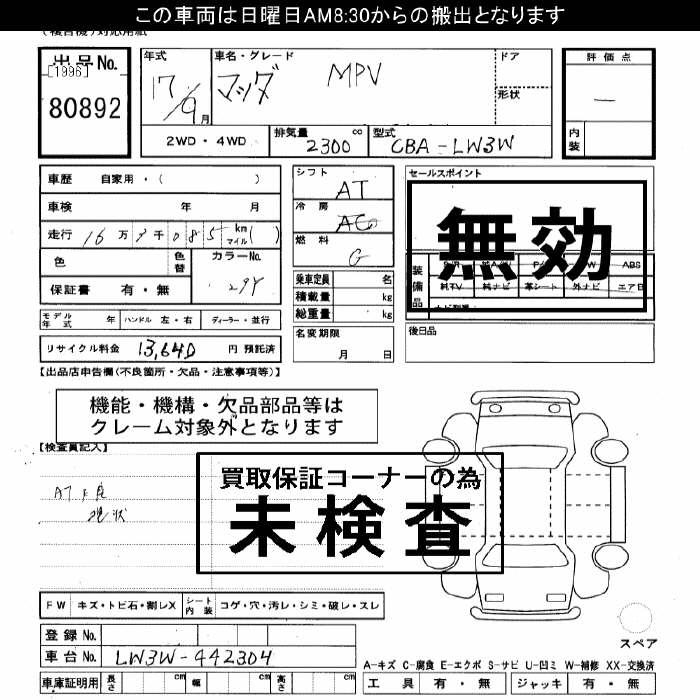 この車両は日曜日AM8:30からの搬出となります
出品No.
[1996]
80892
年式
17/9月
車名・グレード
マツダ MPV
ドア
形状
評価点
—
内装
2WD・4WD
排気量 2300 cc
型式 CBA-LW3W
車歴 自家用・( )
車検 年 月
走行 16万 千085 km マイル( )
色
色替
カラーNo.
29Y
保証書 有・無
モデル年式 年
ハンドル 左・右
ディーラー・並行
リサイクル料金 13,640 円 預託済
シフト AT
冷房 AC
燃料 G
乗車定員 名
積載量 kg
総重量 kg
名変期限
月 日
セールスポイント
無効
装備品
ABS
純TV 純ナビ 革シート 外ナビ エアB
後日品
【出品店申告欄(不良箇所・欠品・注意事項等)】
機能・機構・欠品部品等は
クレーム対象外となります
【検査員記入】
AT不良
現状
買取保証コーナーの為
未検査
FW キズ・トビ石・割レX
シート内装 コゲ・穴・汚レ・シミ・破レ・スレ
登録No.
車台No. LW3W-442304
車庫証明用 長さ cm 幅 cm 高さ cm
スペア
A-キズ C-腐食 E-エクボ S-サビ U-凹ミ W-補修 XX-交換済
工具 有・無 ジャッキ 有・無